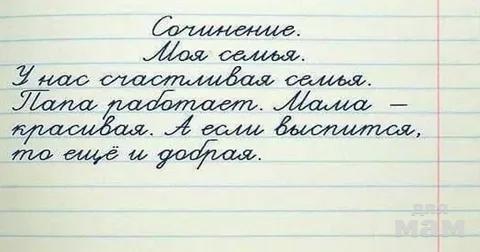 Сочинение.
Моя семья.
У нас счастливая семья.
Папа работает. Мама –
красивая. А если выспится,
то ещё и добрая.
для
мам